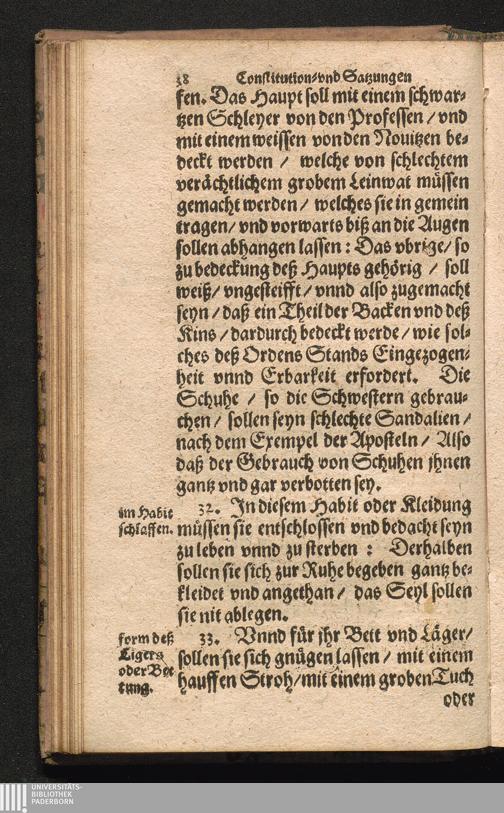 58 Constitution⸗vnd Satzungen
fen. Das Haupt soll mit einem schwar⸗
tzen Schleyer von den Professen / vnd
mit einem weissen von den Nouitzen be⸗
deckt werden / welche von schlechtem
verächtlichem grobem Leinwat müssen
gemacht werden / welches sie in gemein
tragen / vnd vorwarts biß an die Augen
sollen abhangen lassen : Das vbrige / so
zu bedeckung deß Haupts gehörig / soll
weiß / vngesteifft / vnnd also zugemacht
seyn / daß ein Theil der Backen vnd deß
Kins / dardurch bedeckt werde / wie sol⸗
ches deß Ordens Stands Eingezogen⸗
heit vnnd Erbarkeit erfordert. Die
Schuhe / so die Schwestern gebrau⸗
chen / sollen seyn schlechte Sandalien /
nach dem Exempel der Aposteln / Also
daß der Gebrauch von Schuhen jhnen
gantz vnd gar verbotten sey.
im Habit
schlaffen.
32. In diesem Habit oder Kleidung
müssen sie entschlossen vnd bedacht seyn
zu leben vnnd zu sterben : Derhalben
sollen sie sich zur Ruhe begeben gantz be⸗
kleidet vnd angethan / das Seyl sollen
sie nit ablegen.
form deß
Ligers
oder Bet
tung.
33. Vnnd für jhr Bett vnd Läger /
sollen sie sich gnügen lassen / mit einem
hauffen Stroh / mit einem groben Tuch
oder
UNIVERSITÄTS-
BIBLIOTHEK
PADERBORN